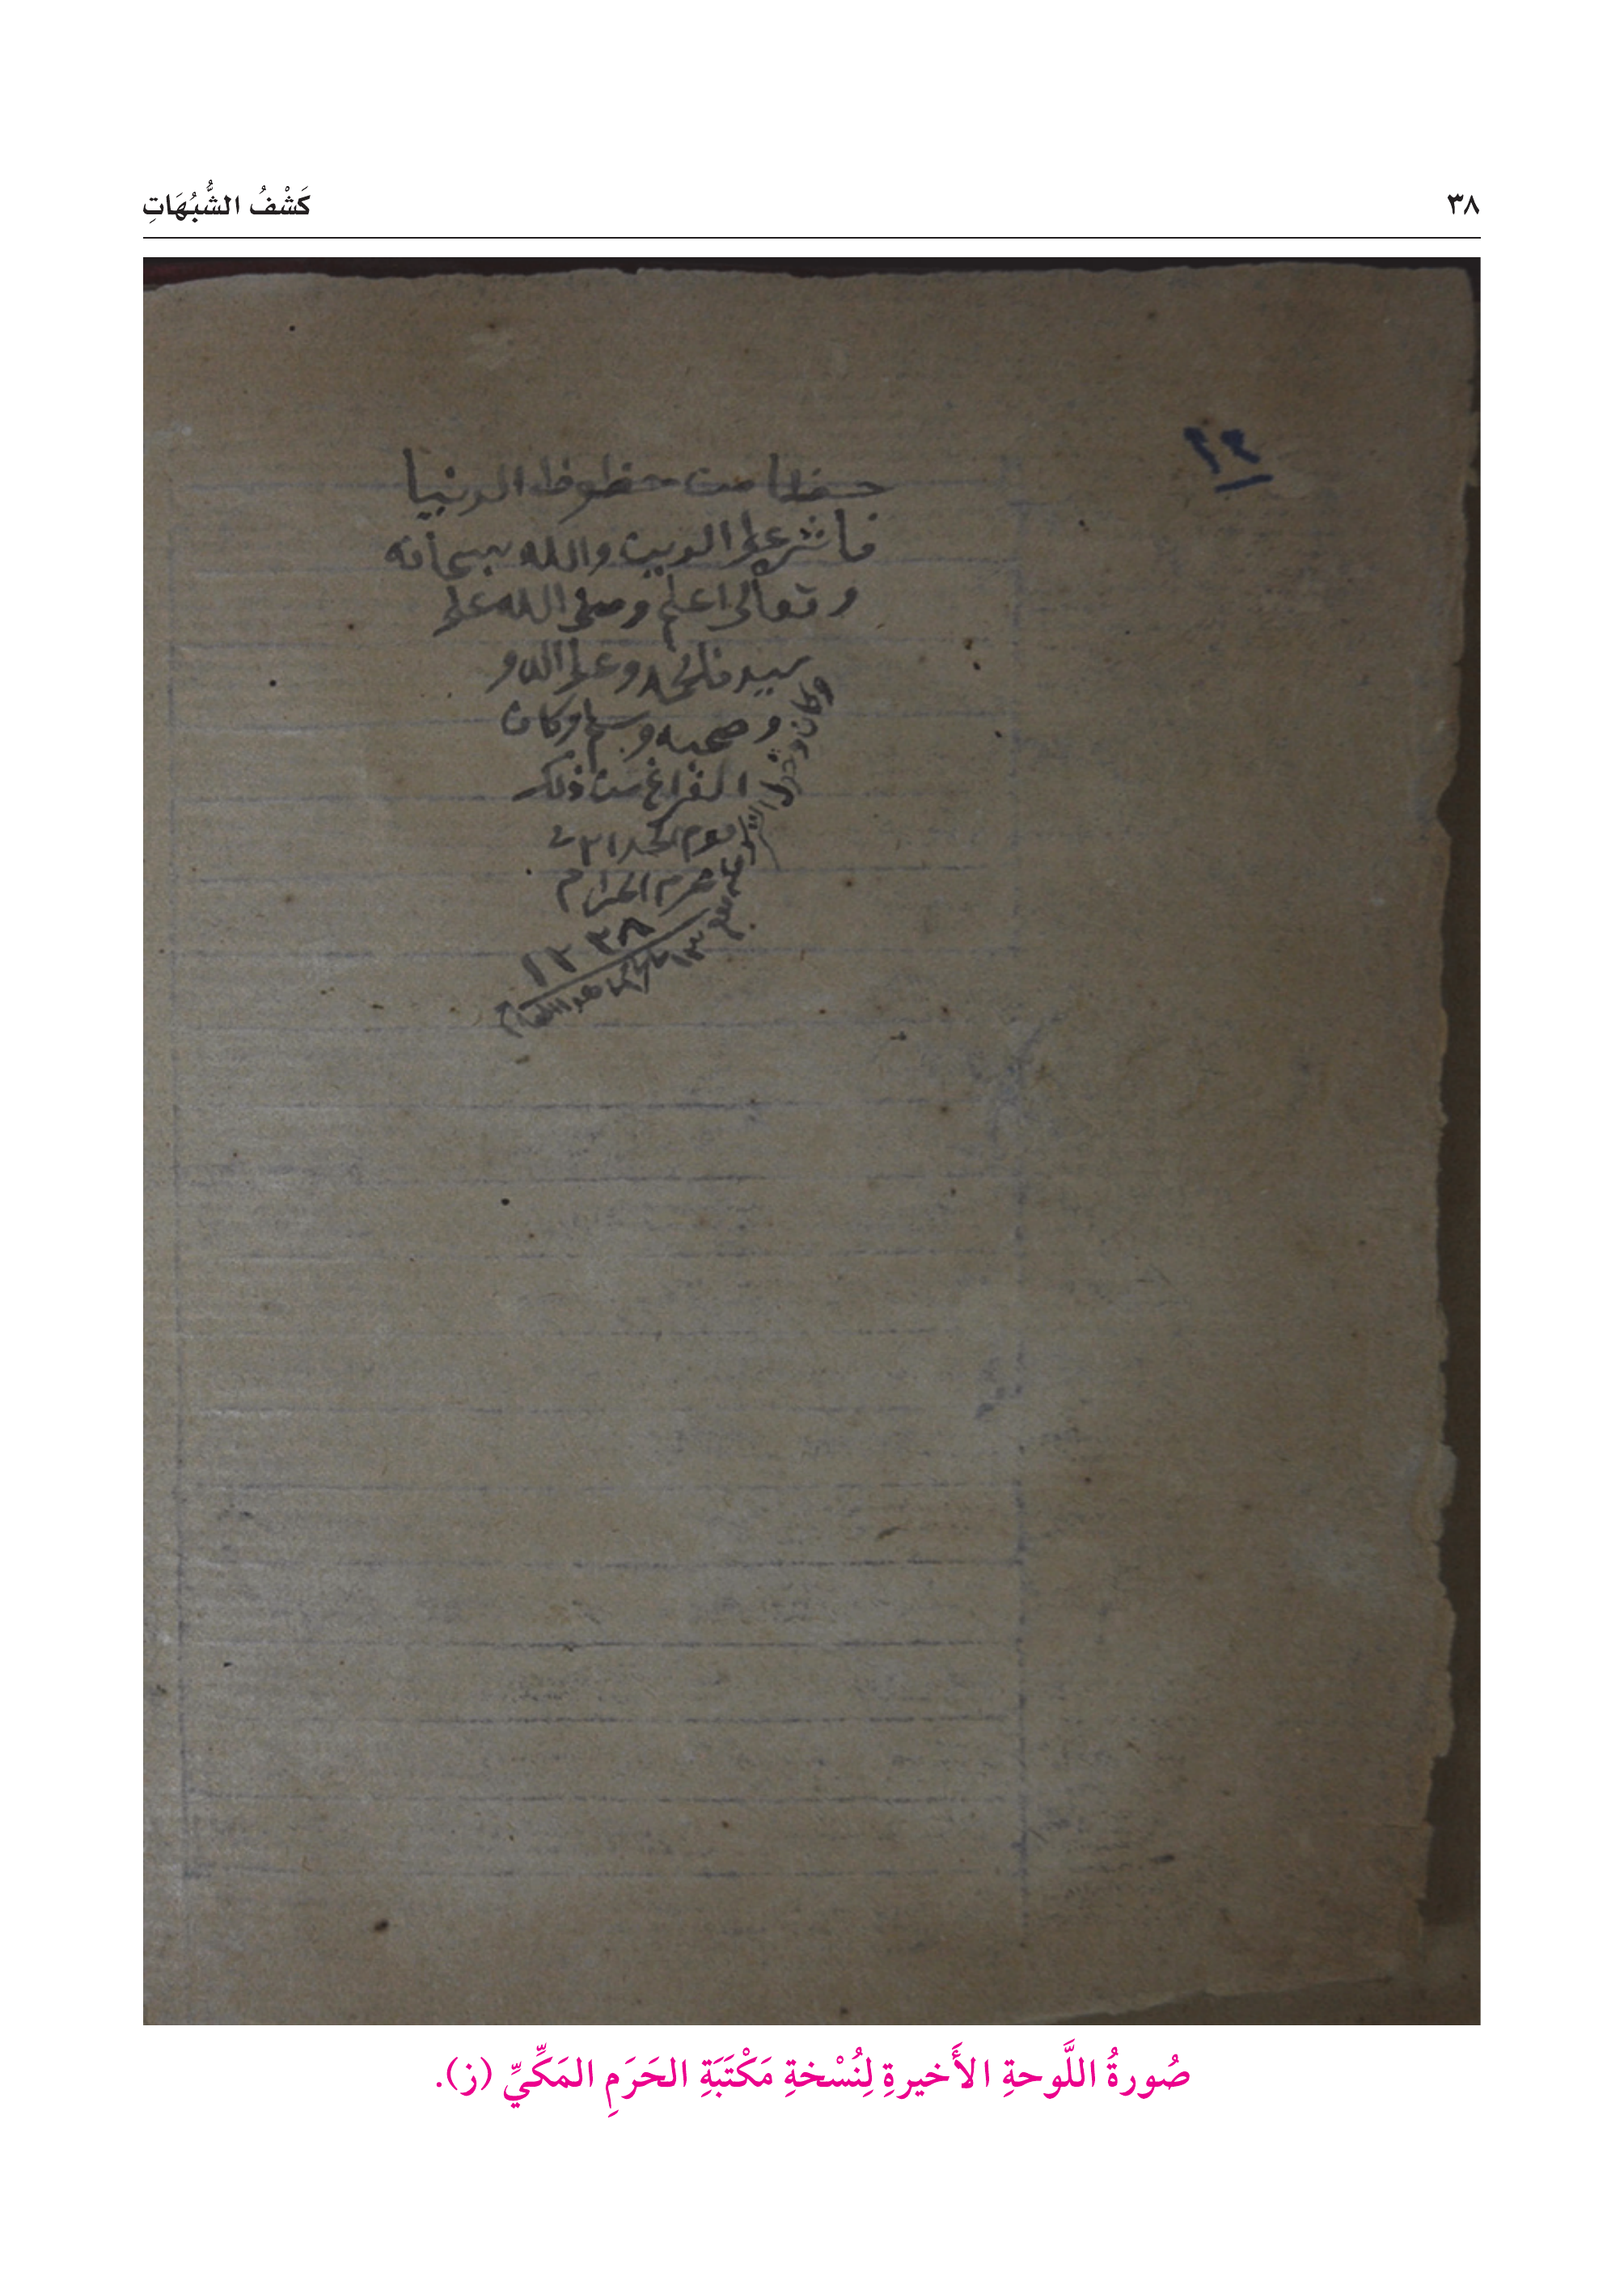 ٣٨
كَشْفُ الشُّبُهَاتِ
حظا من حظوظ الدنيا
فاثره على الدين والله سبحانه
وتعالى اعلم وصلى الله على
سيدنا محمد وعلى اله و
وصحبه وسلم وكان
الفراغ من ذلك
يوم
محرم الحرام
١٣٣٨
صُورةُ اللَّوحةِ الأَخيرةِ لِنُسْخةِ مَكْتَبَةِ الحَرَمِ المَكِّيِّ (ز).